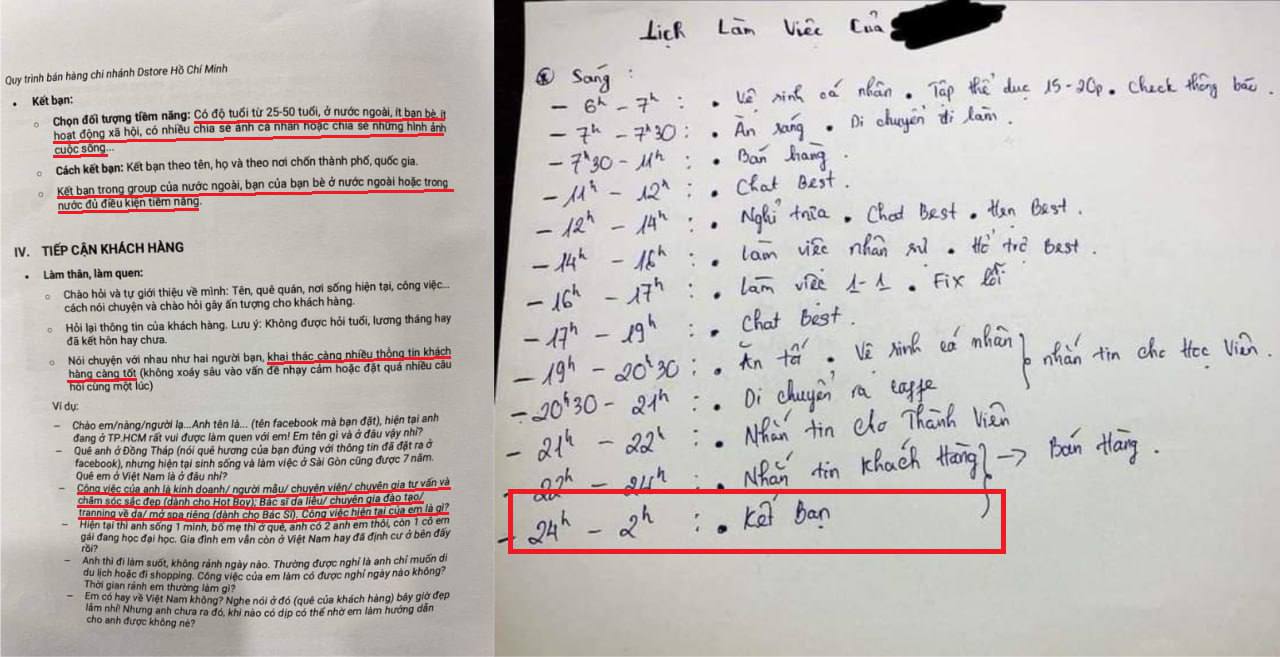 Quy trình bán hàng chi nhánh Dstore Hồ Chí Minh
• Kết bạn:
○ Chọn đối tượng tiềm năng: Có độ tuổi từ 25-50 tuổi, ở nước ngoài, ít bạn bè, ít
hoạt động xã hội, có nhiều chia sẻ ảnh cá nhân hoặc chia sẻ những hình ảnh
cuộc sống...
○ Cách kết bạn: Kết bạn theo tên, họ và theo nơi chốn thành phố, quốc gia.
○ Kết bạn trong group của nước ngoài, bạn của bạn bè ở nước ngoài hoặc trong
nước đủ điều kiện tiềm năng.
IV. TIẾP CẬN KHÁCH HÀNG
• Làm thân, làm quen:
○ Chào hỏi và tự giới thiệu về mình: Tên, quê quán, nơi sống hiện tại, công việc...
cách nói chuyện và chào hỏi gây ấn tượng cho khách hàng.
○ Hỏi lại thông tin của khách hàng. Lưu ý: Không được hỏi tuổi, lương tháng hay
đã kết hôn hay chưa.
○ Nói chuyện với nhau như hai người bạn, khai thác càng nhiều thông tin khách
hàng càng tốt (không xoáy sâu vào vấn đề nhạy cảm hoặc đặt quá nhiều câu
hỏi cùng một lúc)
Ví dụ:
– Chào em/nàng/người lạ...Anh tên là... (tên facebook mà bạn đặt), hiện tại anh
đang ở TP.HCM rất vui được làm quen với em! Em tên gì và ở đâu vậy nhỉ?
– Quê anh ở Đồng Tháp (nói quê hương của bạn đúng với thông tin đã đặt ra ở
facebook), nhưng hiện tại sinh sống và làm việc ở Sài Gòn cũng được 7 năm.
Quê em ở Việt Nam là ở đâu nhỉ?
– Công việc của anh là kinh doanh/ người mẫu/ chuyên viên/ chuyên gia tư vấn và
chăm sóc sắc đẹp (dành cho Hot Boy); Bác sĩ da liễu/ chuyên gia đào tạo/
tranning về da/ mở spa riêng (dành cho Bác Sĩ). Công việc hiện tại của em là gì?
– Hiện tại thì anh sống 1 mình, bố mẹ thì ở quê, anh có 2 anh em thôi, còn 1 cô em
gái đang học đại học. Gia đình em vẫn còn ở Việt Nam hay đã định cư ở bên đấy
rồi?
– Anh thì đi làm suốt, không rảnh ngày nào. Thường được nghỉ là anh chỉ muốn đi
du lịch hoặc đi shopping. Công việc của em làm có được nghỉ ngày nào không?
Thời gian rảnh em thường làm gì?
– Em có hay về Việt Nam không? Nghe nói ở đó (quê của khách hàng) bây giờ đẹp
lắm nhỉ! Nhưng anh chưa ra đó, khi nào có dịp có thể nhờ em làm hướng dẫn
cho anh được không nè?
Lịch Làm Việc Của
Sáng :
– 6h – 7h : • Vệ sinh cá nhân • Tập thể dục 15-20p • Check thông báo.
– 7h – 7h30 : • Ăn sáng • Di chuyển đi làm.
– 7h30 – 11h : • Bán hàng.
– 11h – 12h : • Chat Best.
– 12h – 14h : • Nghỉ trưa • Chat Best • Hẹn Best.
– 14h – 16h : • Làm việc nhân sự • Hỗ trợ Best.
– 16h – 17h : • Làm việc 1-1 • Fix lỗi
– 17h – 19h : • Chat Best.
– 19h – 20h30 : • Ăn tối • Vệ sinh cá nhân } nhắn tin cho Học Viên.
– 20h30 – 21h : • Di chuyển ra caffe
– 21h – 22h : • Nhắn tin cho Thành Viên
– 22h – 24h : • Nhắn tin Khách Hàng } → Bán Hàng.
– 24h – 2h : • Kết Bạn